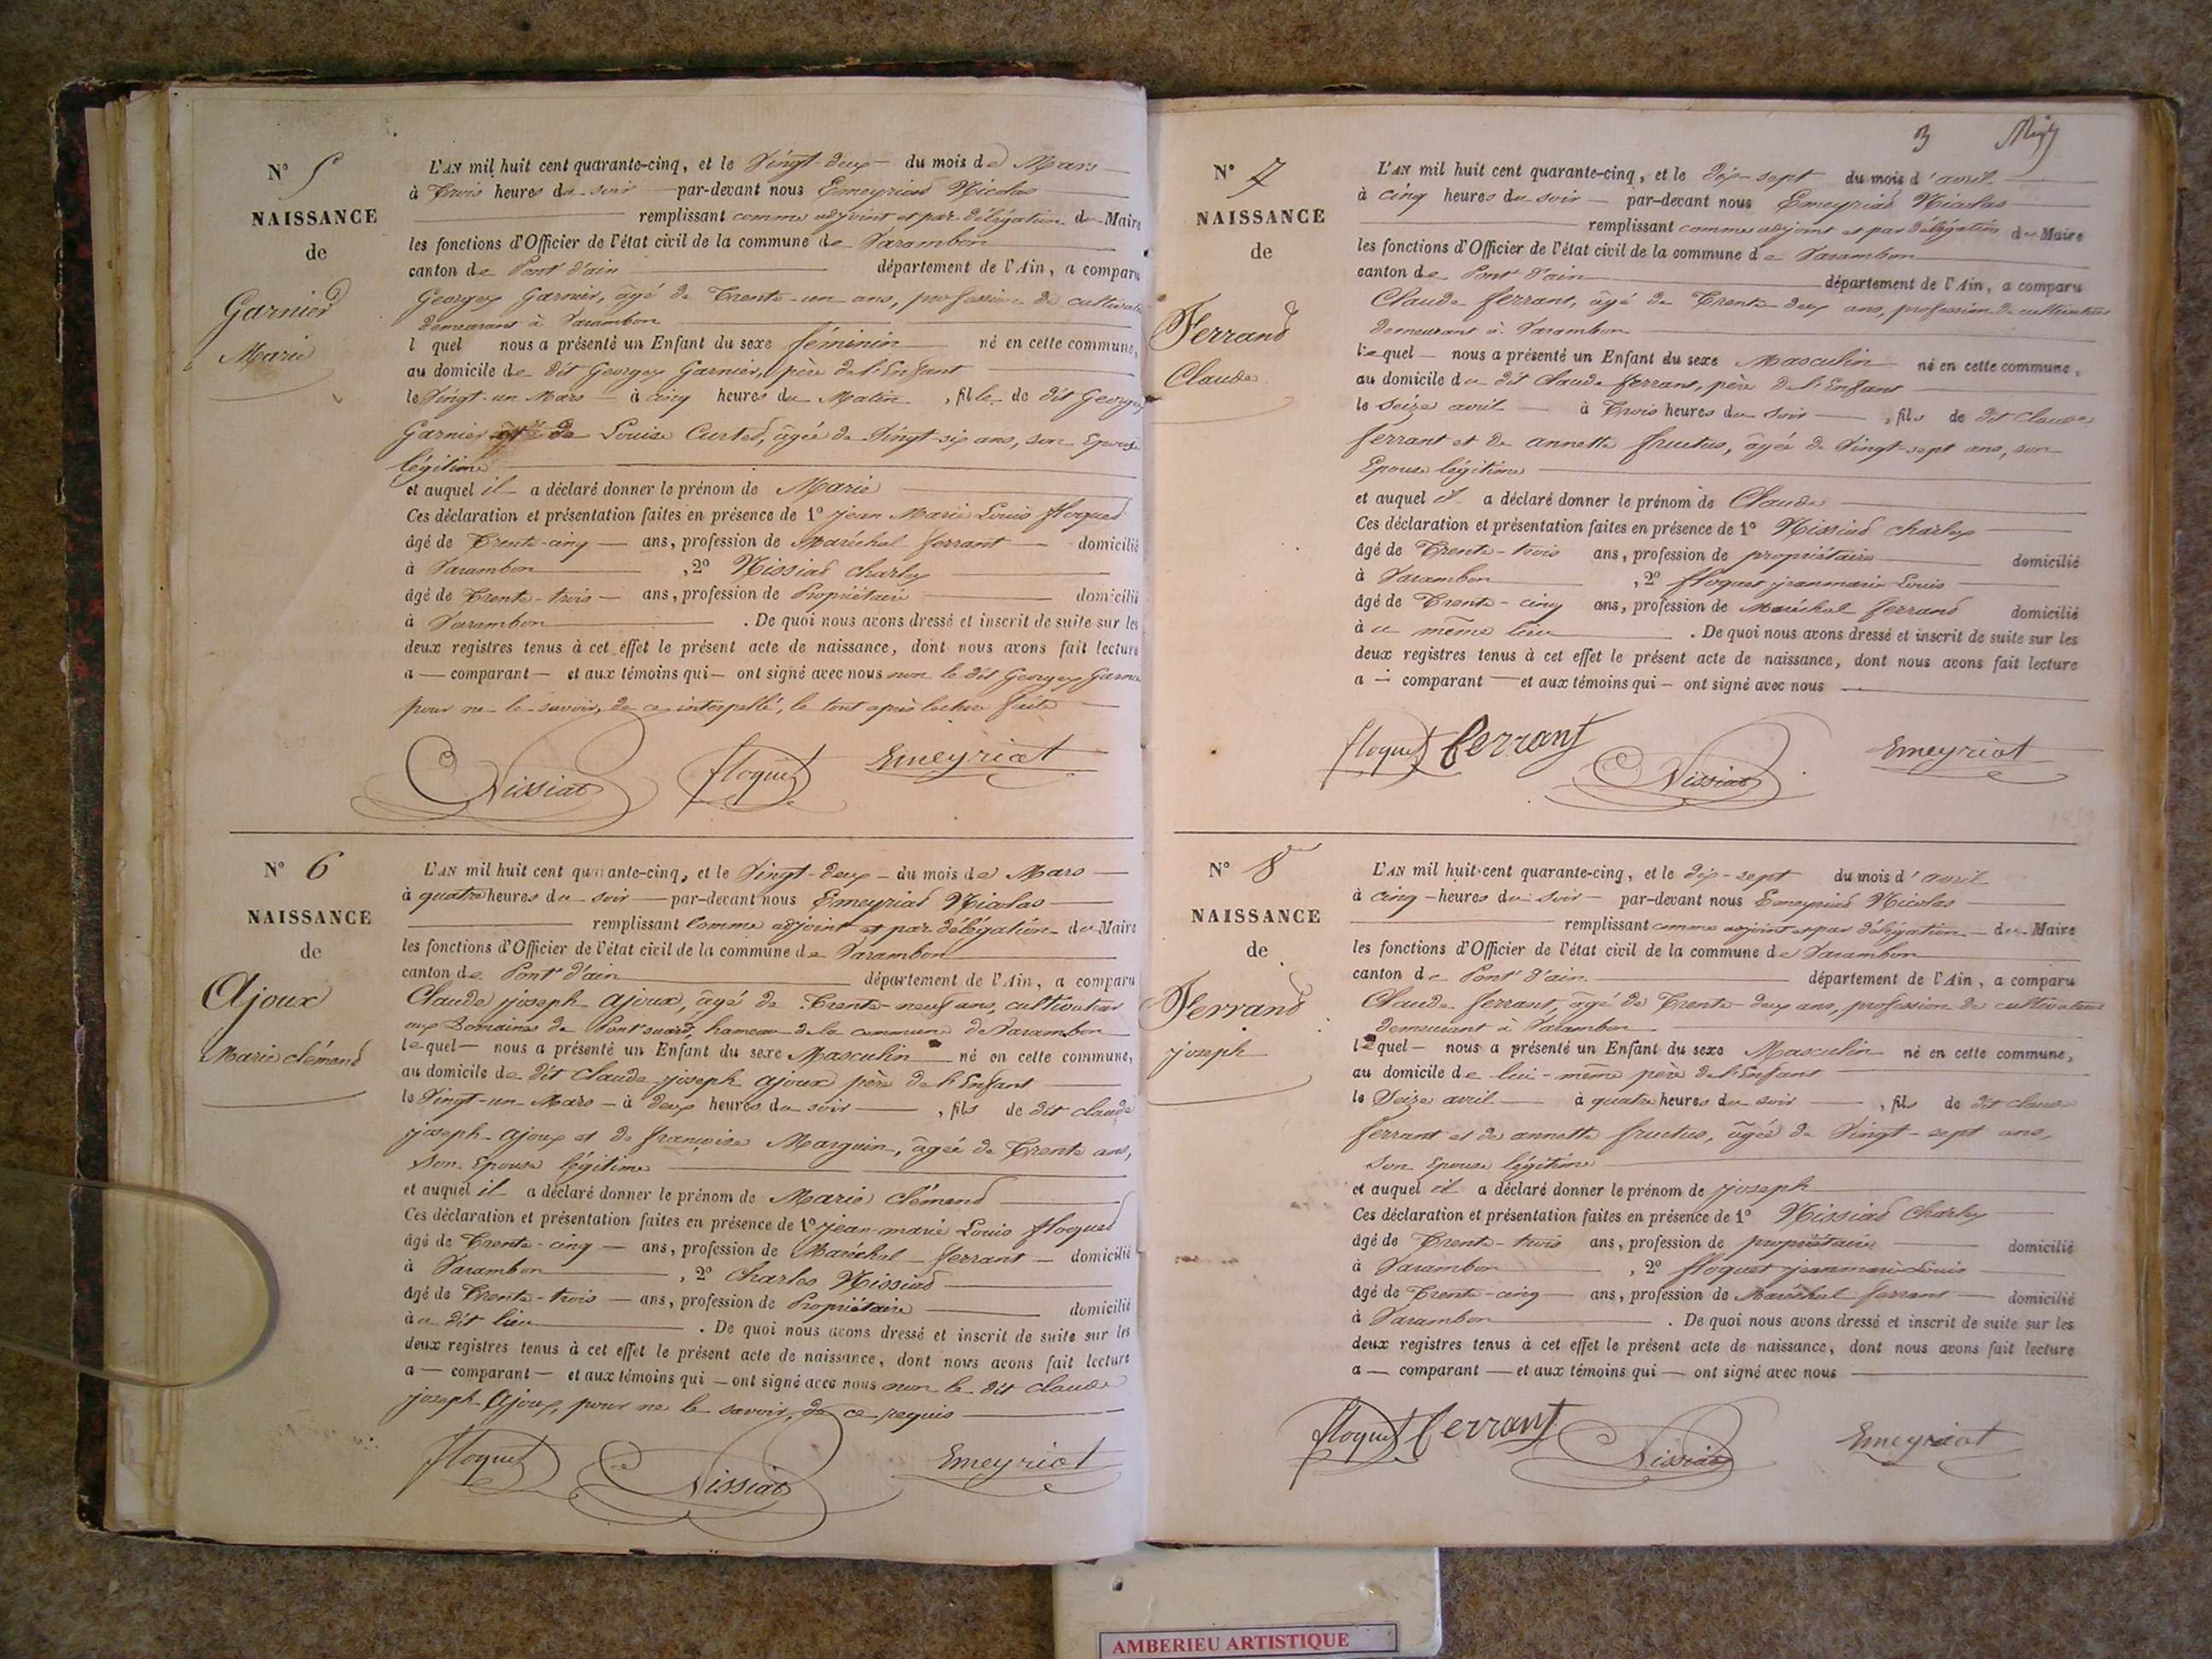 N° 5
NAISSANCE
de
Garnier
Marie
L'AN mil huit cent quarante-cinq, et le Vingt-deux du mois de Mars
à Trois heures du soir par-devant nous Emeyriat Nicolas
remplissant comme adjoint et par délégation du Maire
les fonctions d'Officier de l'état civil de la commune de Varambon
canton de Pont d'ain département de l'Ain, a comparu
Georges Garnier, âgé de Trente-un ans, profession de cultivateur
demeurant à Varambon
l quel nous a présenté un Enfant du sexe féminin né en cette commune,
au domicile de dit Georges Garnier, père de l'Enfant
le Vingt-un Mars à cinq heures du Matin, fille de dit Georges
Garnier et de Louise Curtet, âgée de Vingt-six ans, son Epouse
légitime
et auquel il a déclaré donner le prénom de Marie
Ces déclaration et présentation faites en présence de 1° jean Marie Louis floquet
âgé de Trente-cinq ans, profession de Maréchal ferrant domicilié
à Varambon, 2° Nissiat charles
âgé de Trente-trois ans, profession de Propriétaire domicilié
à Varambon. De quoi nous avons dressé et inscrit de suite sur les
deux registres tenus à cet effet le présent acte de naissance, dont nous avons fait lecture
a comparant et aux témoins qui ont signé avec nous non le dit Georges Garnier
pour ne le savoir, de ce interpellé, le tout après lecture faite
Nissiat floquet Emeyriat
N° 6
NAISSANCE
de
Ajoux
Marie clémend
L'AN mil huit cent quarante-cinq, et le Vingt-deux du mois de Mars
à quatre heures du soir par-devant nous Emeyriat Nicolas
remplissant Comme adjoint et par délégation du Maire
les fonctions d'Officier de l'état civil de la commune de Varambon
canton de Pont d'ain département de l'Ain, a comparu
Claude joseph ajoux, âgé de Trente-neuf ans, cultivateur
aux Domaines de Pont suard, hameau de la commune de Varambon
lequel nous a présenté un Enfant du sexe Masculin né en cette commune,
au domicile de dit Claude joseph ajoux père de l'Enfant
le Vingt-un Mars à deux heures du soir, fils de dit claude
joseph ajoux et de françoise Marguin, âgée de Trente ans,
son Epouse légitime
et auquel il a déclaré donner le prénom de Marie clémend
Ces déclaration et présentation faites en présence de 1° jean-marie Louis floquet
âgé de Trente-cinq ans, profession de Maréchal ferrant domicilié
à Varambon, 2° Charles Nissiat
âgé de Trente-trois ans, profession de Propriétaire domicilié
à u dit lieu. De quoi nous avons dressé et inscrit de suite sur les
deux registres tenus à cet effet le présent acte de naissance, dont nous avons fait lecture
a comparant et aux témoins qui ont signé avec nous non le dit claude
joseph Ajoux, pour ne le savoir, de ce requis
floquet Nissiat Emeyriat
3
N° 7
NAISSANCE
de
Ferrand
Claude
L'AN mil huit cent quarante-cinq, et le dix-sept du mois d'avril
à cinq heures du soir par-devant nous Emeyriat Nicolas
remplissant comme adjoint et par délégation du Maire
les fonctions d'Officier de l'état civil de la commune de Varambon
canton de Pont d'ain département de l'Ain, a comparu
Claude ferrant, âgé de Trente deux ans, profession de cultivateur
demeurant à Varambon
lequel nous a présenté un Enfant du sexe Masculin né en cette commune,
au domicile du dit Claude ferrant, père de l'Enfant
le seize avril à Trois heures du soir, fils de dit Claude
ferrant et de annette fructus, âgée de Vingt-sept ans, son
Epouse légitime
et auquel il a déclaré donner le prénom de Claude
Ces déclaration et présentation faites en présence de 1° Nissiat charles
âgé de Trente-trois ans, profession de propriétaire domicilié
à Varambon, 2° floquet jeanmarie Louis
âgé de Trente-cinq ans, profession de Maréchal ferrand domicilié
à u même lieu. De quoi nous avons dressé et inscrit de suite sur les
deux registres tenus à cet effet le présent acte de naissance, dont nous avons fait lecture
a comparant et aux témoins qui ont signé avec nous
floquet ferrant Nissiat Emeyriat
N° 8
NAISSANCE
de
Ferrand
joseph
L'AN mil huit cent quarante-cinq, et le dix-sept du mois d'avril
à cinq heures du soir par-devant nous Emeyriat Nicolas
remplissant comme adjoint et par délégation du Maire
les fonctions d'Officier de l'état civil de la commune de Varambon
canton de Pont d'ain département de l'Ain, a comparu
Claude ferrant, âgé de Trente-deux ans, profession de cultivateur
demeurant à Varambon
lequel nous a présenté un Enfant du sexe Masculin né en cette commune,
au domicile de lui-même père de l'Enfant
le Seize avril à quatre heures du soir, fils de dit claude
ferrant et de annette fructus, âgée de Vingt-sept ans,
son Epouse légitime
et auquel il a déclaré donner le prénom de joseph
Ces déclaration et présentation faites en présence de 1° Nissiat Charles
âgé de Trente-trois ans, profession de propriétaire domicilié
à Varambon, 2° floquet jeanmarie Louis
âgé de Trente-cinq ans, profession de Maréchal ferrant domicilié
à Varambon. De quoi nous avons dressé et inscrit de suite sur les
deux registres tenus à cet effet le présent acte de naissance, dont nous avons fait lecture
a comparant et aux témoins qui ont signé avec nous
floquet ferrant Nissiat Emeyriat
AMBERIEU ARTISTIQUE